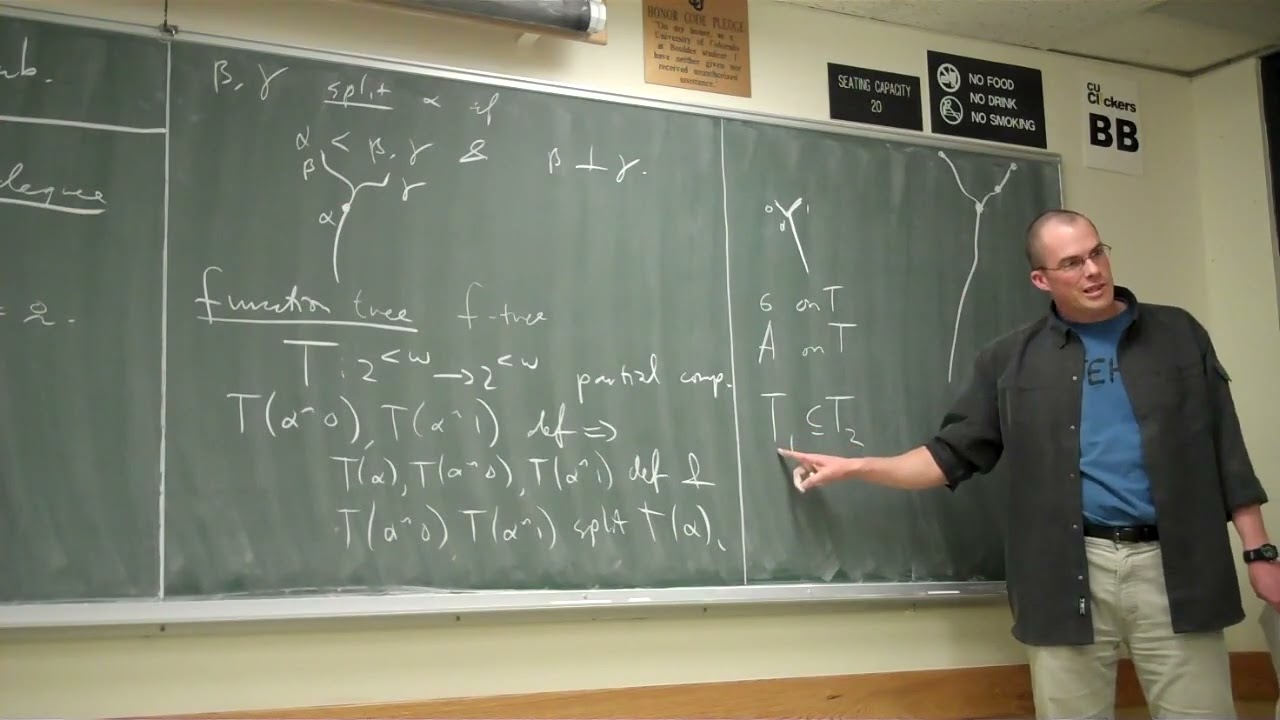 ub.
degree
= 2.
β, γ split α if
α < β, γ & β ⊥ γ.
β
γ
α
function tree f-tree
T : 2^{<ω} → 2^{<ω} partial comp.
T(α^0), T(α^1) def ⇒
T(α), T(α^0), T(α^1) def &
T(α^0) T(α^1) split T(α).
0 1
σ on T
A on T
T₁ ⊆ T₂
HONOR CODE PLEDGE
"On my honor, as a
University of Colorado
at Boulder student I
have neither given nor
received unauthorized
assistance."
SEATING CAPACITY
20
NO FOOD
NO DRINK
NO SMOKING
CU
Clickers
BB